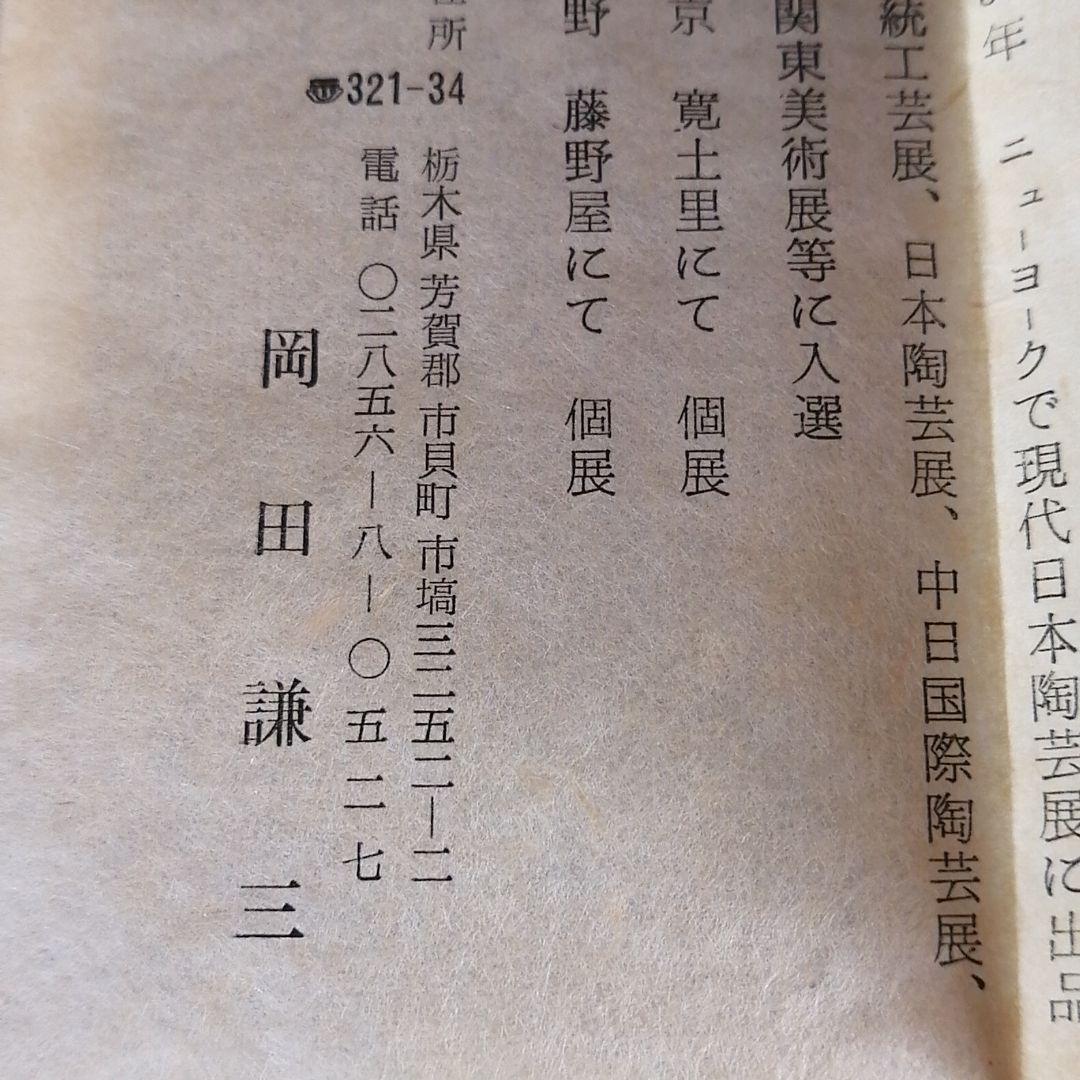 年　ニューヨークで現代日本陶芸展に出品
統工芸展、日本陶芸展、中日国際陶芸展、
関東美術展等に入選
京　寛土里にて　個展
野　藤野屋にて　個展
所
〠321-34
栃木県芳賀郡市貝町市塙三二五二―二
電話　〇二八五六―八―〇五二七
岡田謙三